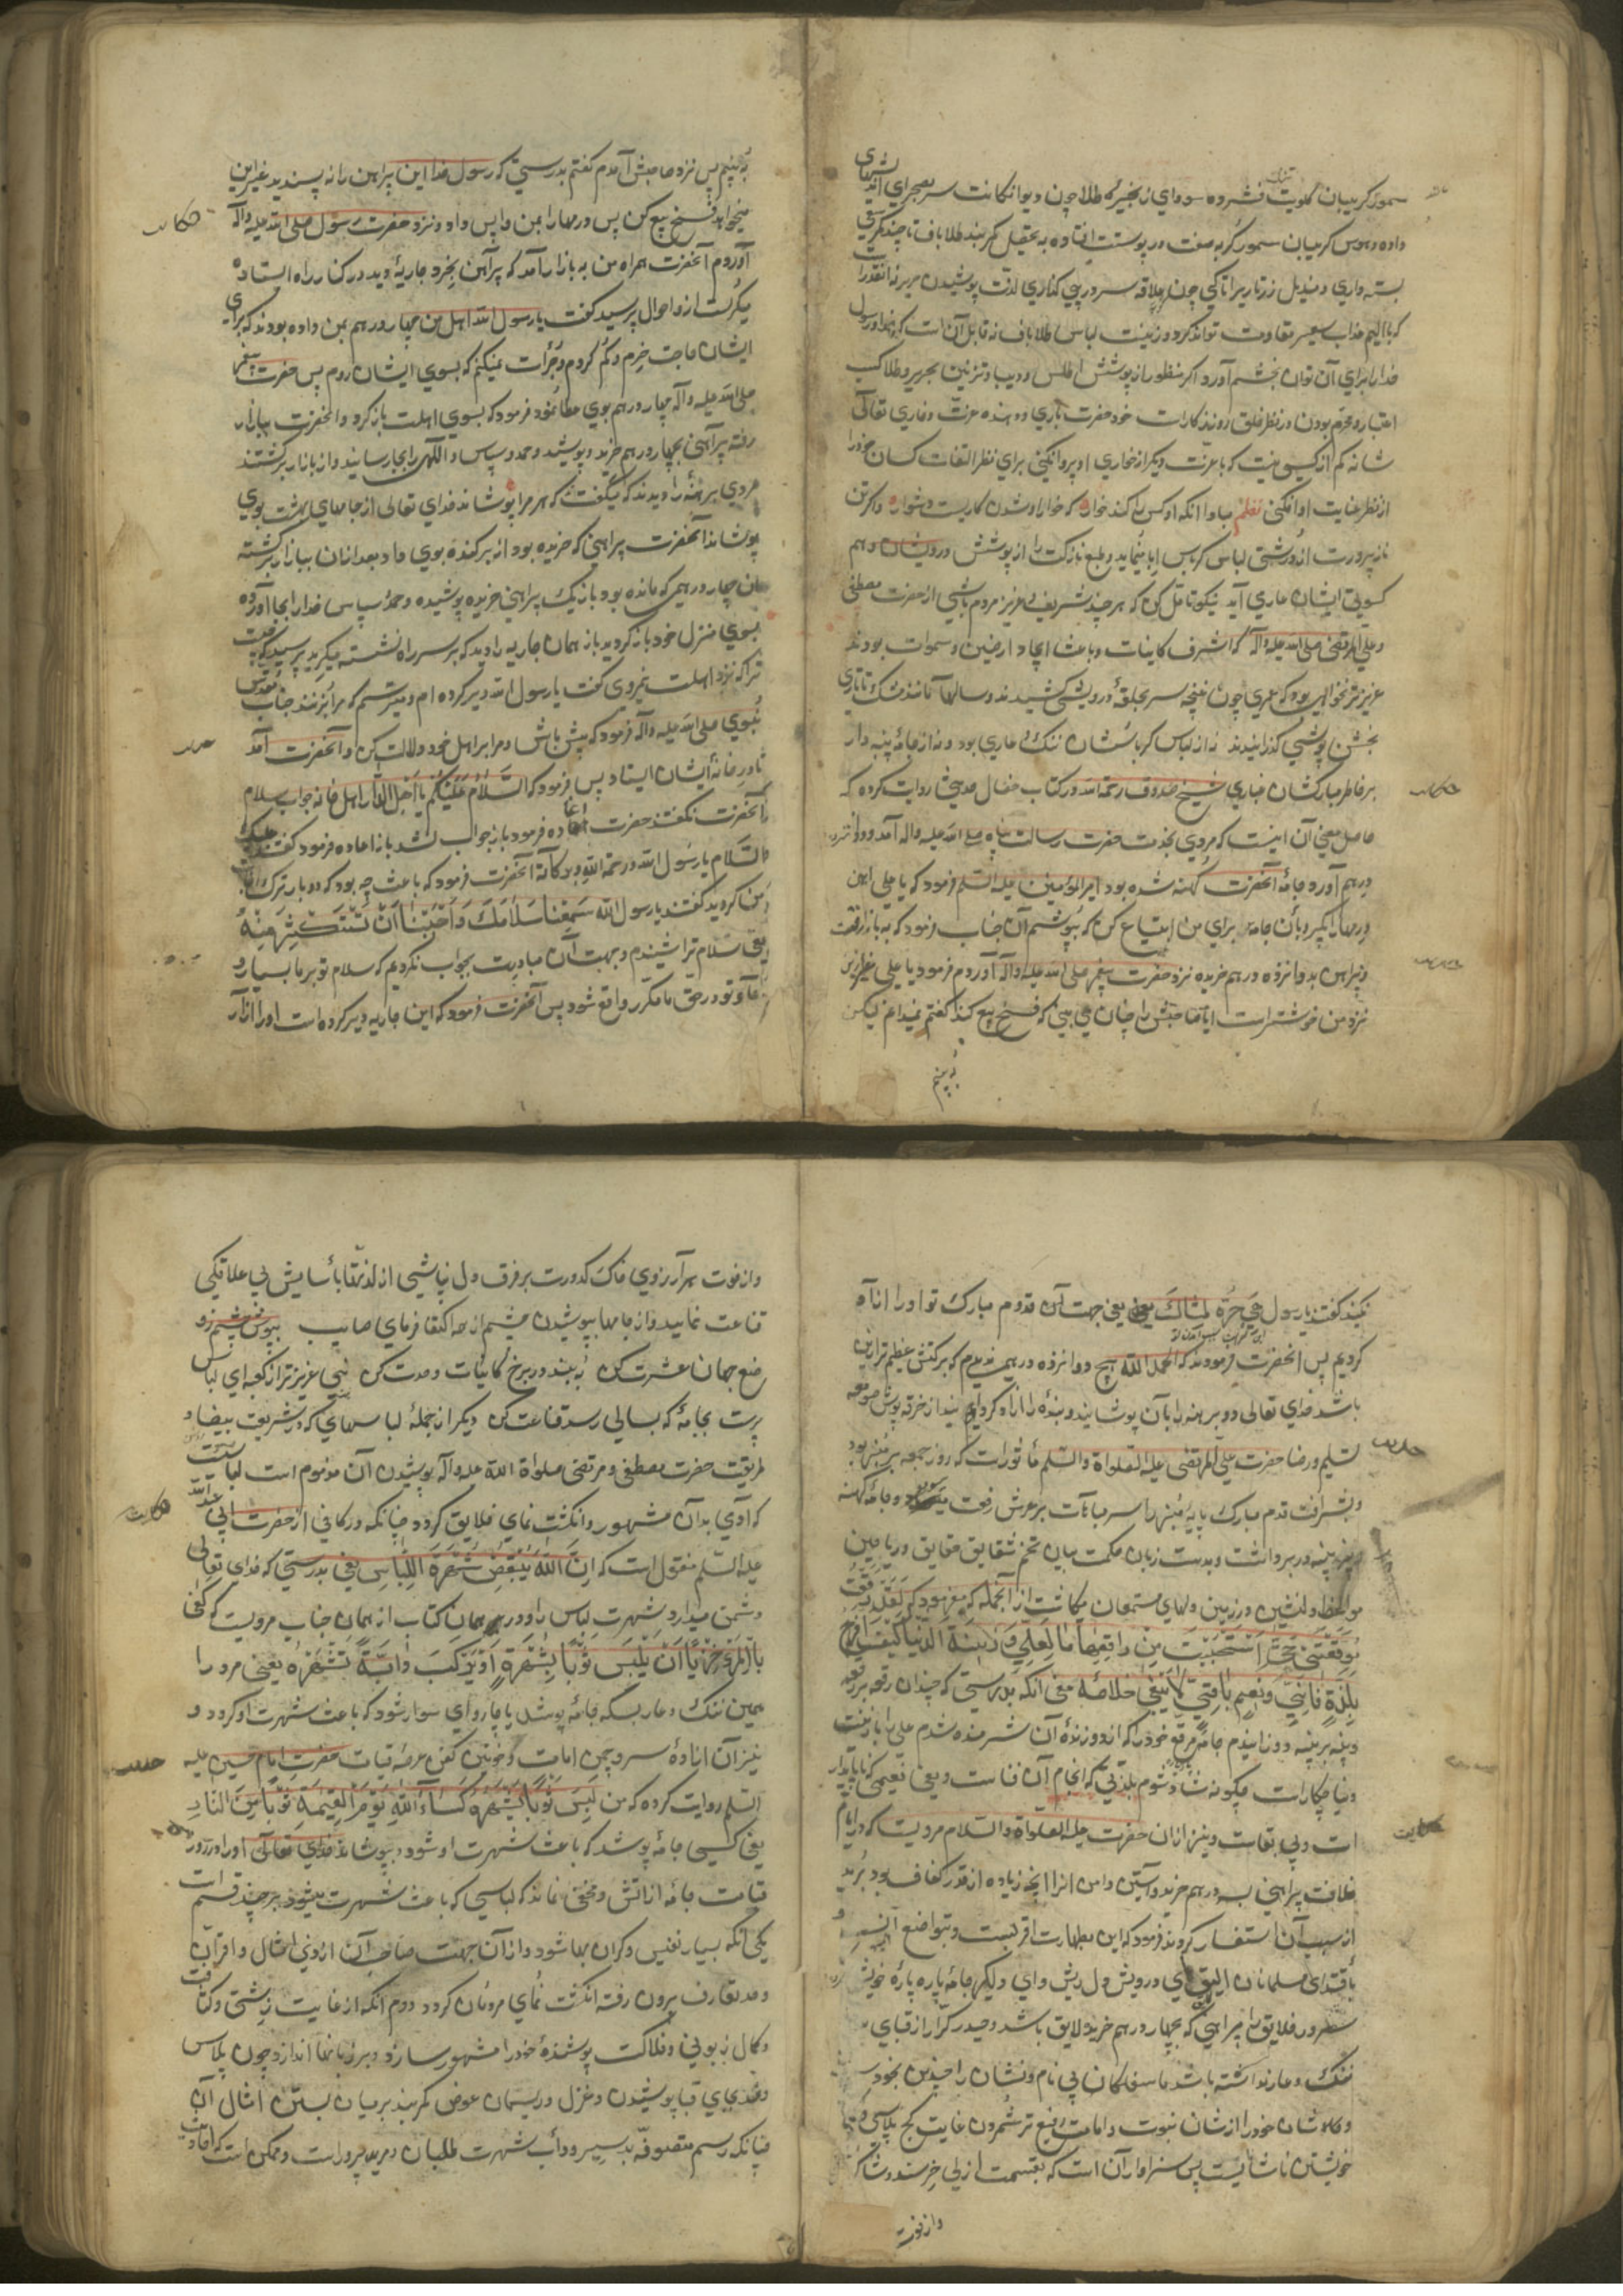 سمور گریبان گلویت فشرده سودای زنجیرهٔ طلا چون دیوانگانت سر بصحرای
داده و هوس گریبان سمور گربه صفت در پوستت افتاده به تخیل کمربند طلاباف تا چند کمر
بسته داری و مندیل زرتاری را تا کی چون علاقه سر در پی گذاری لذت پوشیدن حریر نه آنقدر
که با الیم عذاب سعیر مقاومت تواند کرد و زینت لباس طلاباف نه قابل آن است که خدا و رسول
خدا را برای آن توان بخشم آورد اگر منظور از پوشش اطلس و دیبا و تزئین بحریر و طلا کسب
اعتبار و محترم بودن در نظر خلق روزگار است خود حضرت باری دهنده عزت و خواری تعالی
شانه کم از کسی نیست که با عزت دیگر از خواری او پروا نکنی برای نظر التفات کسان خود را
از نظر عنایت او افکنی نظم مبادا آنکه او کس را کند خوار که خوار او شدن کاریست دشوار و اگر تن
نازپرورت از درشتی لباس کرباس ابا مینماید و طبع نازکت را از پوشش درویشان و هم
کسوتی ایشان عاری آید نیکو تامل کن که هر چند شریف و عزیز مردم باشی از حضرت مصطفی
و علی المرتضی صلی الله علیه و آله که اشرف کاینات و باعث ایجاد ارضین و سموات بودند
عزیزتر نخواهی بود که عمری چون غنچه سر بحلقهٔ درویشی کشیدند و سالها مانند مشک تاتاری
بخشن پوشی گذرانیدند نه از لباس کرباسشان ننگ و عاری بود و نه از جامهٔ پنبه دار
بر خاطر مبارکشان غباری شیخ صدوق رحمة الله در کتاب خصال حدیثی روایت کرده که
حاصل معنی آن اینست که مردی بخدمت حضرت رسالت پناه صلی الله علیه و اله آمد و دوازده
درهم آورد و جامهٔ آنحضرت کهنه شده بود امیر المؤمنین علیه السلم فرمود که یا علی این
درهمها را بگیر و بآن جامه برای من ابتیاع کن که بپوشم آن جناب فرمود که به بازار رفتم
و پیراهن بدوانزده درهم خریده نزد حضرت پیغمبر صلی الله علیه و آله آوردم فرمود یا علی غیر این
نزد من خوشتر است ایا صاحبش را چنان می بینی که فسخ بیع کند گفتم نمیدانم لیکن
به بینم
به بینم پس نزد صاحبش آمدم گفتم بدرستی که رسول خدا این پیراهن را نه پسندید غیر این
میخواهد فسخ بیع کن پس درهمها را بمن واپس داد و نزد حضرت رسول صلی الله علیه و آله
آوردم آنحضرت همراه من به بازار آمد که پیراهن بخرد جاریهٔ دید در کنار راه ایستاده
میگریست از و احوال پرسید گفت یا رسول الله اهل من چهار درهم بمن داده بودند که برای
ایشان حاجت خرم و گم کردم و جرأت نمیکنم که بسوی ایشان روم پس حضرت پیغمبر
صلی الله علیه و آله چهار درهم بوی عطا نمود فرمود که بسوی اهلت باز گرد و آنحضرت ببازار
رفته پیراهنی بچهار درهم خرید و پوشید و حمد و سپاس الهی را بجا رسانید و از بازار برگشتند
مردی برهنه را دیدند که میگفت که هر مرا پوشاند خدای تعالی از جامهای بهشت بوی
پوشاند آنحضرت پیراهنی که خریده بود از بر کنده بوی داد بعد از آن ببازار برگشته
بان چهار درهمی که مانده بود باز یک پیراهنی خریده پوشیده و حمد و سپاس خدا را بجا آورده
بسوی منزل خود باز گردید باز همان جاریه را دید که بر سر راه نشسته میگرید پرسید که چیست
ترا که نزد اهلت نمیروی گفت یا رسول الله دیر کرده ام و میترسم که مرا بزنند جناب مقدس
نبوی صلی الله علیه و آله فرمود که پیش باش و مرا بر اهل خود دلالت کن و آنحضرت آمد
تا در خانهٔ ایشان ایستاد پس فرمود که السَّلامُ عَلَیْکُمْ یا اَهْلَ الدّار اهل خانه جواب سلام
آنحضرت نگفتند حضرت اعاده فرمود باز جواب نشد باز اعاده فرمود گفتند علیک
السلام یا رسول الله و رحمة الله و برکاته آنحضرت فرمود که باعث چه بود که دو بار ترک جواب
من کردید گفتند یا رسول الله سَمِعْنا سَلامَکَ وَاَحْبَبْنا اَنْ نَسْتَکْثِرَ مِنْهُ
یعنی سلام ترا شنیدیم و بجهت آن مبادرت بجواب نکردیم که سلام تو بر ما بسیار و
دعا و تو در حق ما مکرر واقع شود پس آنحضرت فرمود که این جاریه دیر کرده است او را آزار
نکنید گفتند یا رسول هِیَ حُرَّة لِمَمْشاکَ یعنی بجهت آن قدوم مبارک تو او را آزاد
کردیم پس آنحضرت فرمودند که الحمد الله هیچ دوانزده درهمی ندیدم که برکتش عظیم تر ازین
باشد خدای تعالی دو برهنه را بآن پوشانید و بندهٔ را آزاد کرد
تسلیم و رضا حضرت علی المرتضی علیه الصلواة والسلم مأثور است که روز جمعه بر منبر بود
و بشرافت قدم مبارک پایهٔ منبر را سر مباهات بر عرش رفعت
دربر داشت و بدست زبان حکمت بیان تخم شقایق حقایق و ریاحین
مواعظ دلنشین در زمین دلهای مستمعان میکاشت از آنجمله میفرمود که لَقَدْ رَقَعْتُ
مُرَقَّعَتی حَتّی اسْتَحْیَیْتُ مِنْ راقِعِها ما لِعَلِیٍّ وَ زینَةِ الدُّنْیا کَیْفَ اَفْرَحُ
بِلَذَّةٍ فانیَةٍ وَنَعیمٍ لایَبْقی خلاصهٔ معنی آنکه بدرستی که چندان رقعه بر رقعه
و پینه بر پینه دوزانیدم جامهٔ مرقع خود را که از دوزندهٔ آن شرمنده شدم علی را با زینت
دنیا چکار است چگونه شاد شوم بلذتی که انجام آن فناست و یعنی نعیمی که ناپایدار
است و بی بقاست و نیز از ان حضرت علیه الصلواة والسلام مرویست که در ایام
خلافت پیراهنی بسه درهم خرید و آستین و دامن آنرا آنچه زیاده از قدر کفاف بود برید
از سبب آن استفسار کردند فرمود که این بطهارت اقربست و بتواضع انسب
باقتدای مسلمانان الیق ای درویش دل ریش
و کمال شان خود را از شان نبوت و امامت رفیع تر شمردن غایت کج پلاسی
خویشتن ناشناسیست پس سزاوار آن است که بقسمت ازلی خرسند و شاکر
وازفوت
وازفوت هر آرزوی خاک کدورت بر فرق دل نپاشی از لذتها بآسایش بی علاقگی
قناعت نمایید و از جامها بپوشیدن چشم از همه اکتفا فرمای صایب بپوش چشم زو
وضع جهان عشرت کن به بند در برخ کاینات وحدت کن نیی عزیزتر از کعبه ای لباس
پرست بجامهٔ که بسالی رسد قناعت کن دیگر از جملهٔ لباسهای که در شریعت بیضا و
طریقت حضرت مصطفی و مرتضی صلواة الله علیه و آله پوشیدن آن مذموم است لباسیست
که آدمی بدآن مشهور و انگشت نمای خلایق گردد چنانکه در کافی از حضرت ابی عبد الله
علیه السلم منقول است که اِنَّ اللهَ یُبْغِضُ شُهْرَةَ اللِّباسِ یعنی بدرستی که خدای تعالی
دشمن میدارد شهرت لباس را و در همان کتاب از همان جناب مرویست که کَفی
بِالْمَرْءِ خِزْیاً اَنْ یَلْبَسَ ثَوْباً یَشْهَرُهُ اَوْ یَرْکَبَ دابَّةً تَشْهَرُهُ یعنی مرد را
همین ننگ و عار بس که جامهٔ پوشد یا چاروای سوار شود که باعث شهرت او گردد و
نیز آن ازادهٔ سرو چمن امامت و خونین کفن عرصهٔ قیامت حضرت امام حسین علیه
السلم روایت کرده که من لَبِسَ ثَوْباً یَشْهَرُهُ کَساهُ اللهُ یَوْمَ الْقِیمَةِ ثَوْباً مِنَ النّارِ
یعنی کسی جامهٔ پوشد که باعث شهرت او شود بپوشاند خدای تعالی او را در روز
قیامت جامهٔ از آتش و مخفی نماند که لباسی که باعث شهرت میشود بر چند قسم است
یکی آنکه بسیار نفیس و گران بها شود و از آن جهت صاحب آن از وی امثال و اقران
و حد تعارف بیرون رفته انگشت نمای مردمان گردد دوم آنکه از غایت زشتی و کثافت
و کمال زبونی و فلاکت پوشندهٔ خود را مشهور سازد و بر زبانها اندازد چون پلاس
و نمد بجای قبا پوشیدن و غزل و ریسمان عوض کمربند بر میان بستن و امثال آن
چنانکه رسم متصوفه بد سیر و دأب شهرت طلبان مرید پرور است و ممکن است که احادیث